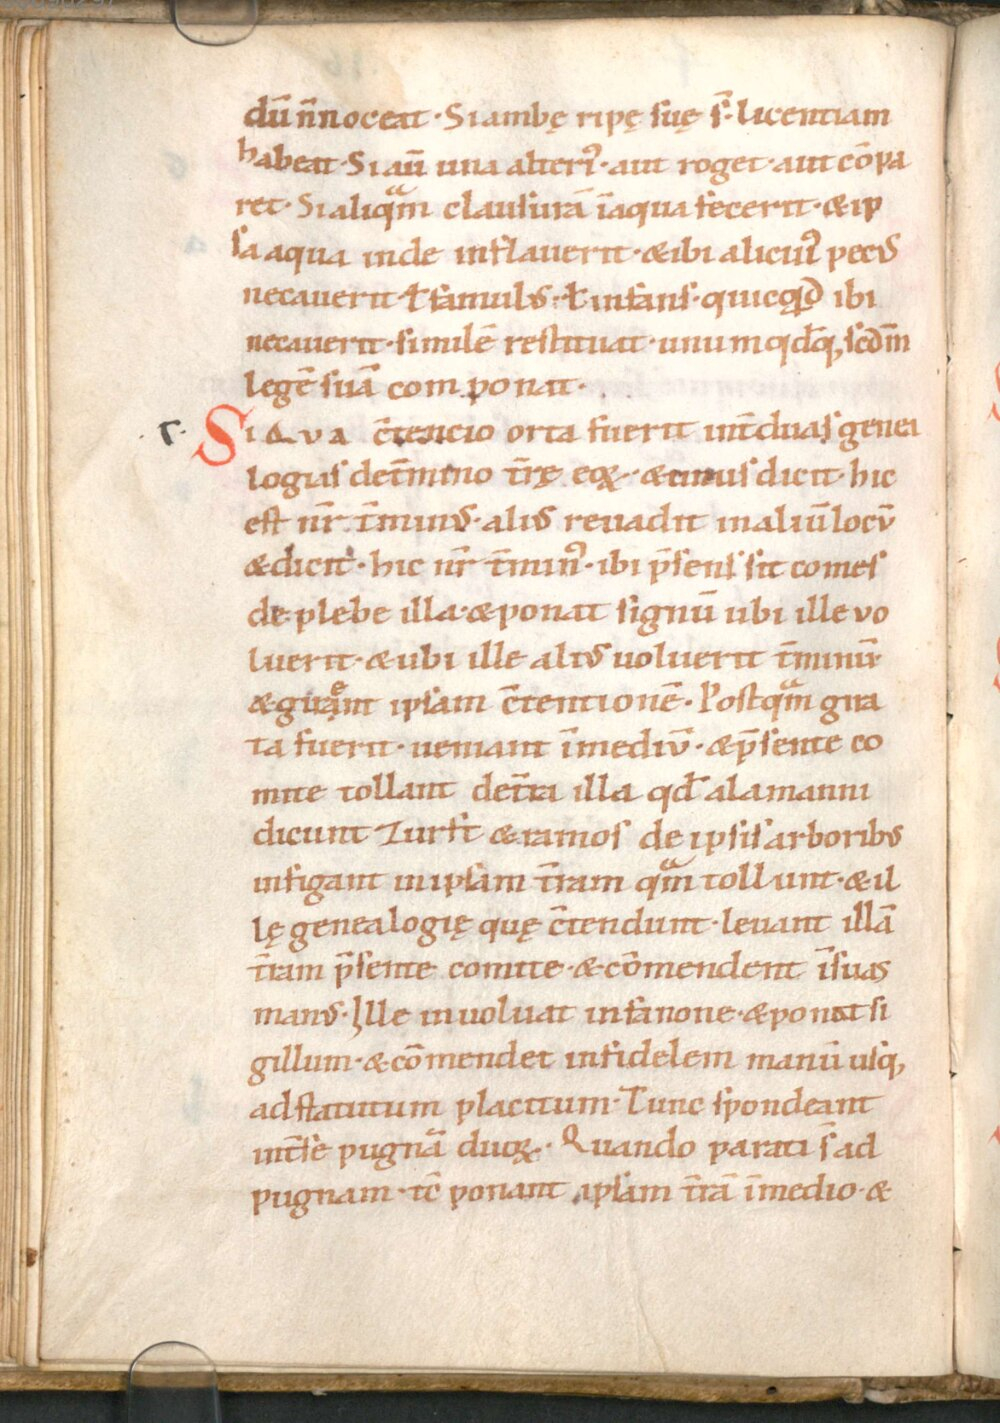 dū n̄ noceat · Si ambę ripę suę s̄ · licentiam
habeat · Si aū una alteri9 · aut roget · aut cōpa
ret · Si aliqᵃm clausurā ī aqua fecerit · & ip
sa aqua inde inflauerit · & ibi alicui9 pecus
necauerit · ł famulus · ł infans · quicqd̄ ibi
necauerit · similē restituat · unumqd̄q; scdm̄
legē suā componat ·
r · Si Qua c̄tencio orta fuerit int̄ duas genea
logias de t̄mino t̄rę eoꝝ · & unus dicit · hic
est nr̄ t̄minus · alius reuadit in aliū locū
& dicit · hic nr̄ t̄min9 · ibi p̄sens sit comes
de plebe illa · & ponat signū ubi ille vo
luerit · & ubi ille alius uoluerit t̄minū
& girᵉnt ipsam c̄tentionē · Postqᵃm gira
ta fuerit · ueniant ī mediū · & p̄sente co
mite tollant de t̄ra illa qd̄ alamanni
dicunt Zurft & ramos de ipsis arboribus
infigant in ipsam t̄ram qᵃm tollunt · & il
lę genealogię quę c̄tendunt · leuant illā
t̄ram p̄sente comite · & cōmendent ī suas
manus · Ille inuoluat in fanone · & ponat si
gillum · & cōmendet in fidelem manū usq;
ad statutum placitum · Tunc spondeant
int̄ se pugnā duoꝝ · Quando parati s̄ ad
pugnam · tc̄ ponant ipsam t̄rā ī medio · &